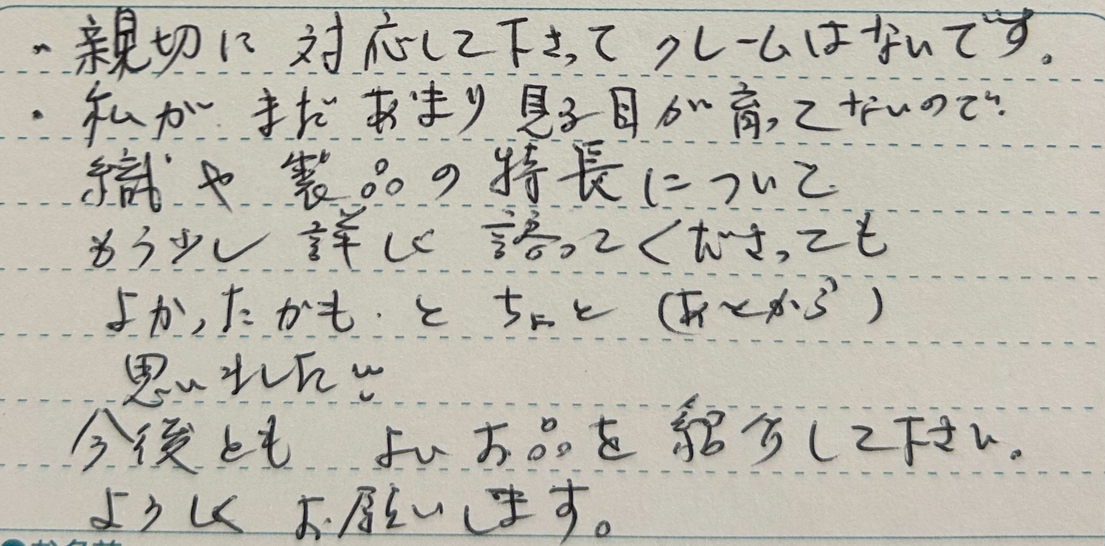 ・親切に対応して下さってクレームはないです。
・私がまだあまり見る目が育ってないので
織や製品の特長について
もう少し詳しく語ってくださっても
よかったかも と ちょっと (あとから)
思いました
今後とも よいお品を紹介して下さい。
よろしくお願いします。